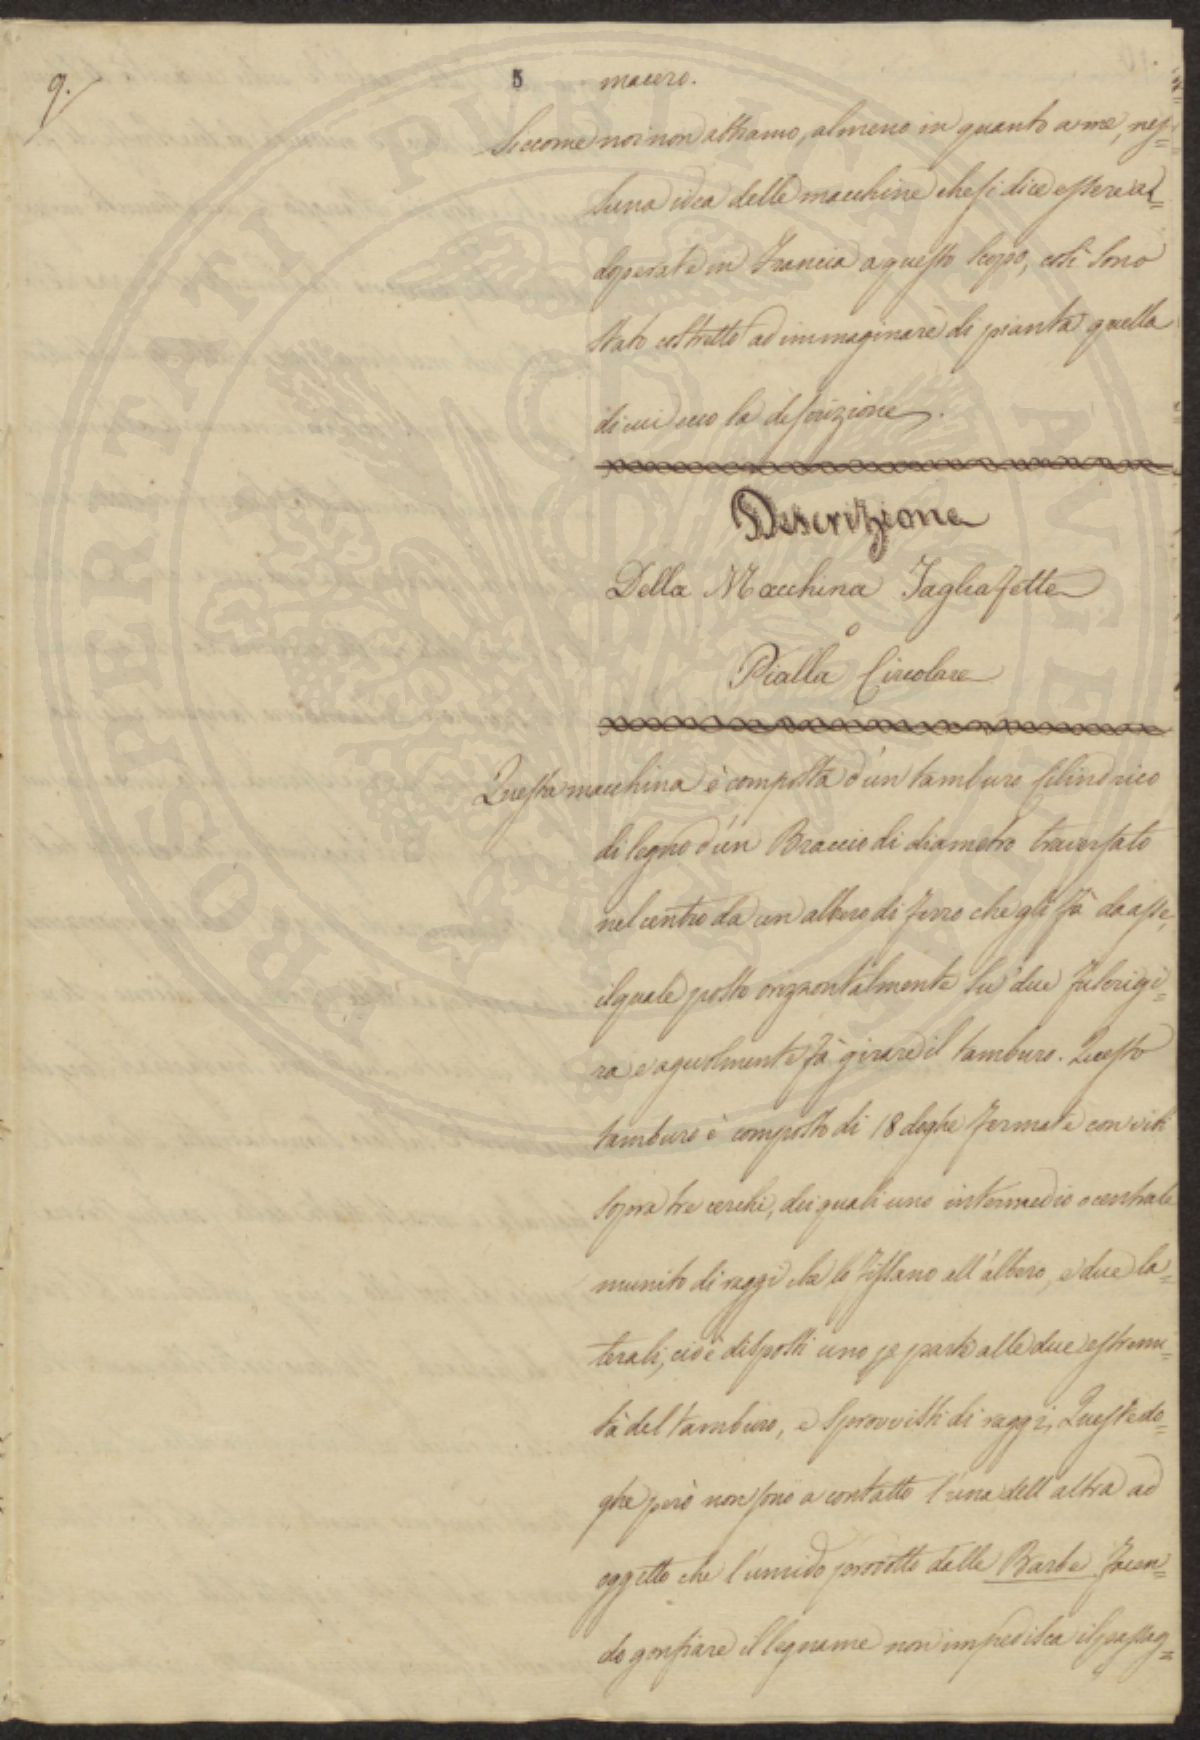 9.
5 macero.
Siccome noi non abbiamo, almeno in quanto a me, nes=
suna idea delle macchine che si dice essere a=
doperate in Francia a questo scopo, così sono
stato costretto ad immaginare di pianta quella
di cui ecco la descrizione.
Descrizione
Della Macchina Tagliafette
o
Pialla Circolare
Questa macchina è composta d'un tamburo cilindrico
di legno d'un Braccio di diametro traversato
nel centro da un albero di ferro che gli fà da asse,
il quale posto orizzontalmente su due fulcri gi=
ra e agevolmente fà girare il tamburo. Questo
tamburo è composto di 18 doghe fermate con viti
sopra tre cerchi, dei quali uno intermedio o centrale
munito di raggi che lo fissano all'albero, e due la=
terali, cioè disposti uno p parte alle due estremi=
tà del tamburo, e sprovvisti di raggi, Queste do=
ghe però non sono a contatto l'una dell'altra ad
oggetto che l'umido prodotto dalle Barbe facen=
do gonfiare il legname non impedisca il passag=
PROSPERITATI PVBLICAE AVGENDAE